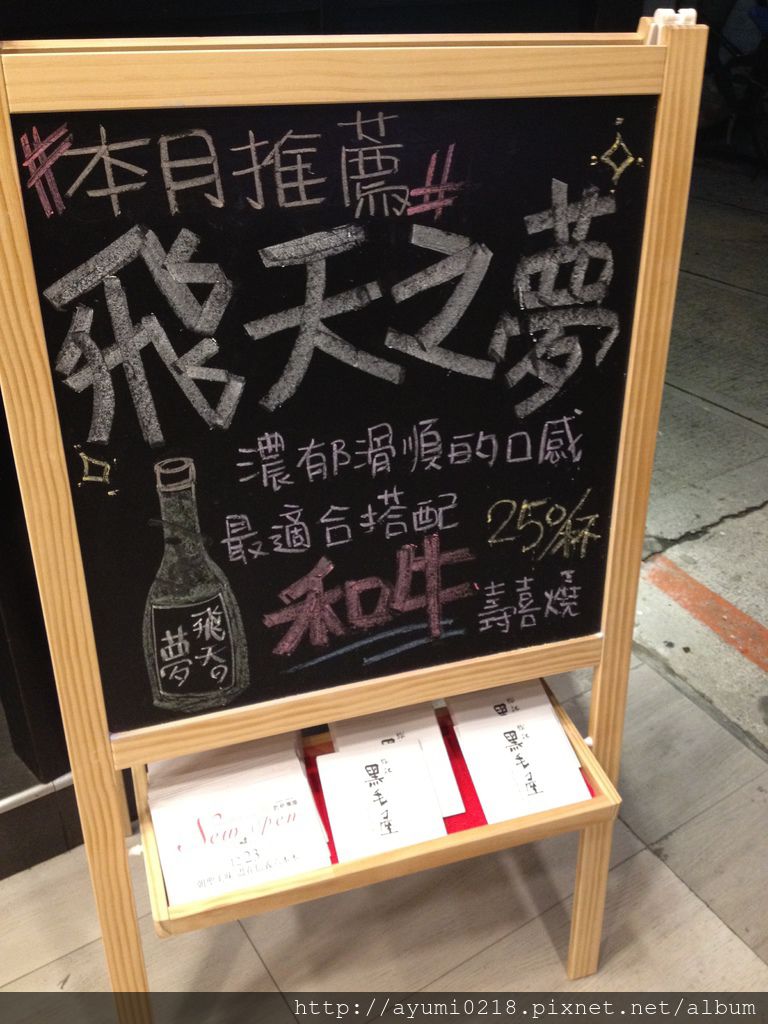 #本月推薦#
飛天之夢
濃郁滑順的口感
最適合搭配
250/杯
和牛
壽喜燒
飛天の
夢
New open
12.23
黑毛屋
黑毛屋
http://ayumi0218.pixnet.net/album